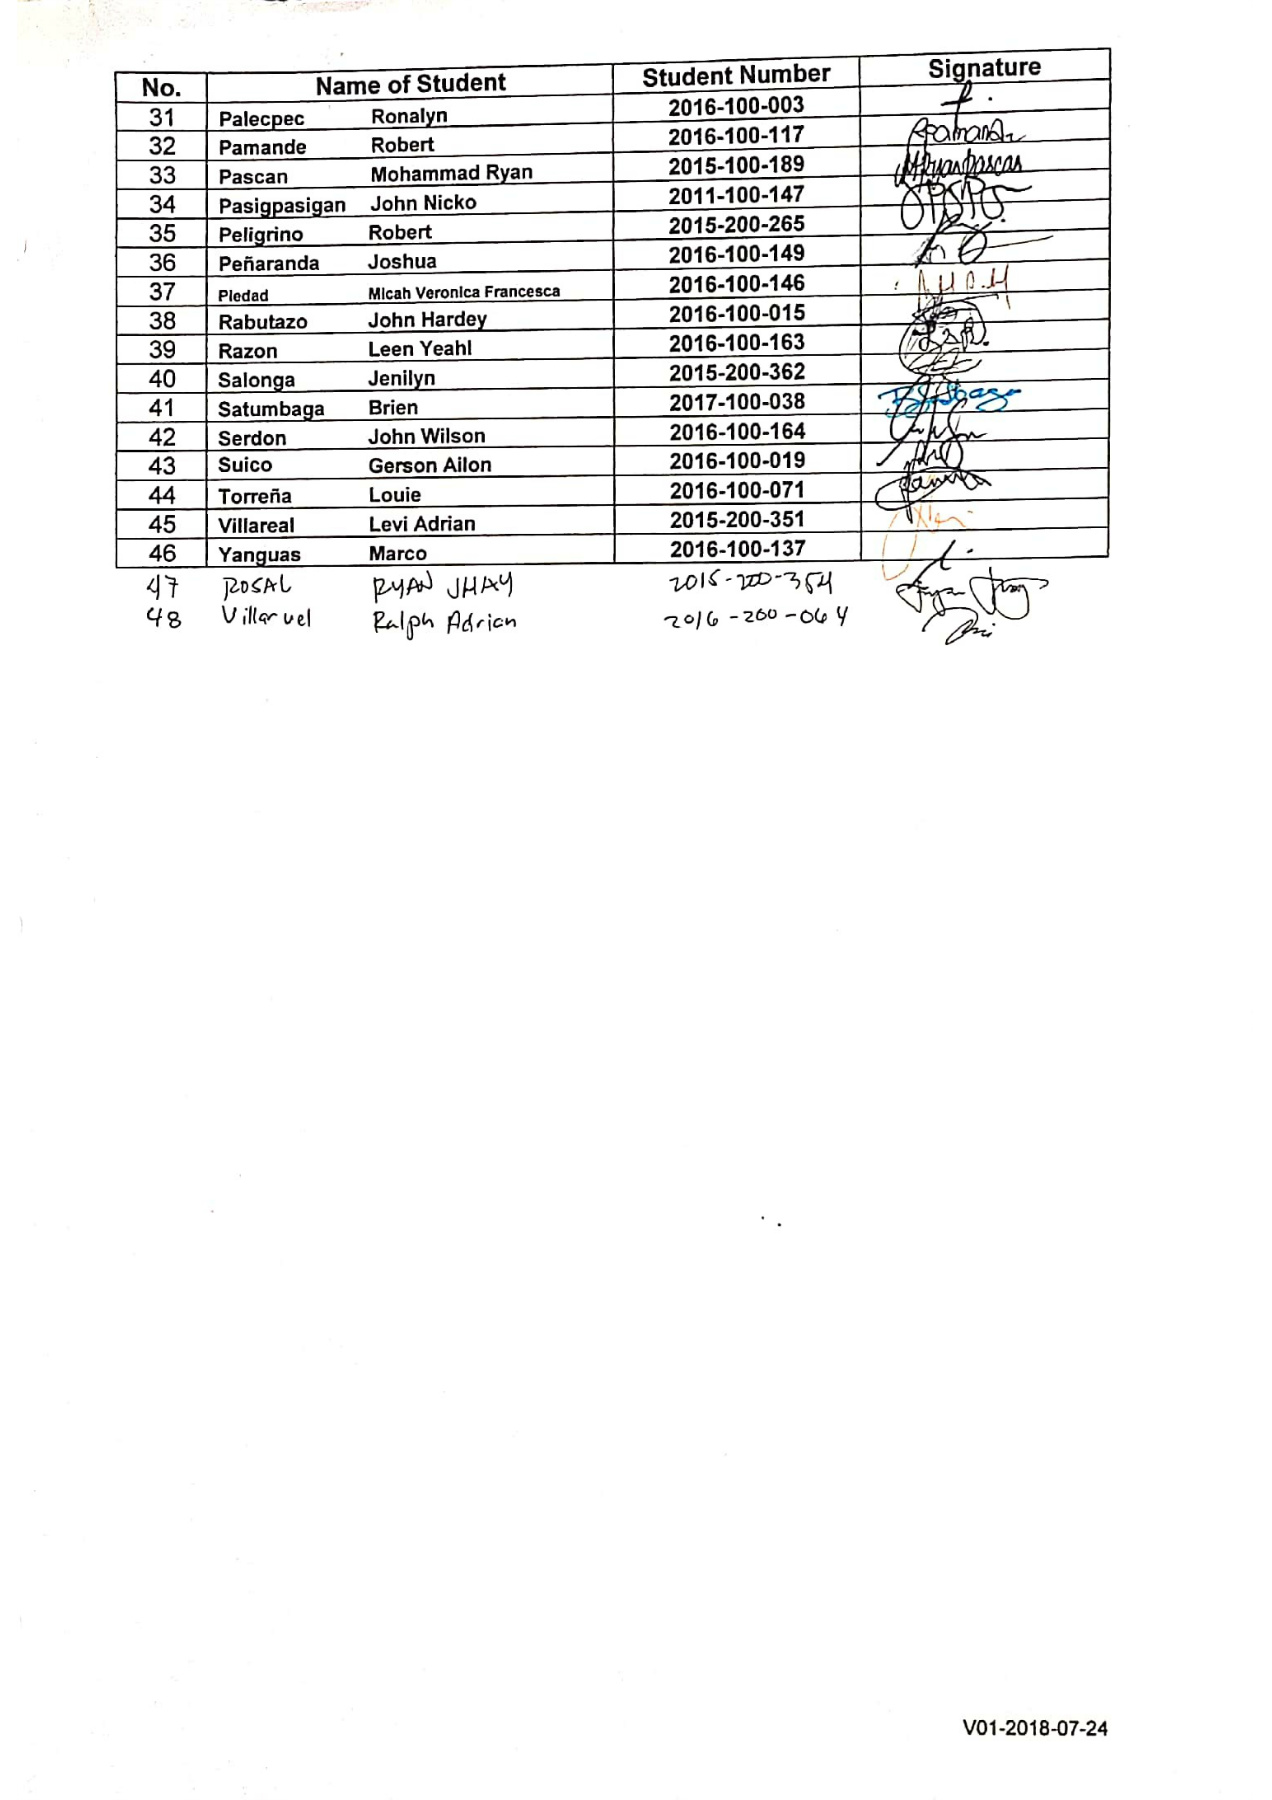 No. Name of Student Student Number Signature
31 Palecpec Ronalyn 2016-100-003
32 Pamande Robert 2016-100-117
33 Pascan Mohammad Ryan 2015-100-189
34 Pasigpasigan John Nicko 2011-100-147
35 Peligrino Robert 2015-200-265
36 Peñaranda Joshua 2016-100-149
37 Piedad Micah Veronica Francesca 2016-100-146
38 Rabutazo John Hardey 2016-100-015
39 Razon Leen Yeahl 2016-100-163
40 Salonga Jenilyn 2015-200-362
41 Satumbaga Brien 2017-100-038
42 Serdon John Wilson 2016-100-164
43 Suico Gerson Ailon 2016-100-019
44 Torreña Louie 2016-100-071
45 Villareal Levi Adrian 2015-200-351
46 Yanguas Marco 2016-100-137
47 ROSAL RYAN JHAY 2015-200-354
48 Villaruel Ralph Adrian 2016-200-064
V01-2018-07-24